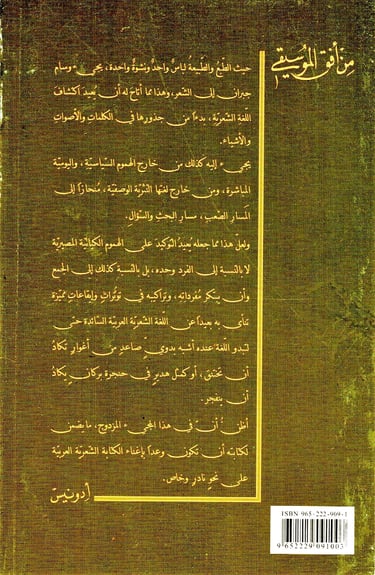 من أفق الموسيقى
حيث الطبع والطبيعة لباسٌ واحدٌ ونشوةٌ واحدة، يجيء وسام
جبران إلى الشعر، وهذا مما أتاح له أن يُعيد اكتشاف
اللغة الشعريّة، بدءًا من جذورها في الكلمات والأصوات
والأشياء.
يجيء إليه كذلك من خارج الهموم السياسيّة، واليوميّة
المباشرة، ومن خارج لغتها النثريّة الوصفيّة، منحازًا إلى
المسار الصّعب، مسار البحث والسّؤال.
ولعلّ هذا مما جعله يُعيدُ التوكيدَ على الهموم الكيانيّة المصيريّة
لا بالنسبة إلى الفرد وحده، بل بالنسبة كذلك إلى الجمع
وأن يبتكر مُفرداتِه، وتراكيبه في توتّراتٍ وإيقاعاتٍ مميّزة
تنأى به بعيدًا عن اللغة الشعريّة العربيّة السائدة حتى
لتبدو اللّغة عنده أشبه بدويٍّ صاعدٍ من أغوارٍ تكادُ
أن تختنق، أو كمثل هديرٍ في حنجرة بركانٍ يكادُ
أن ينفجر.
أظنّ أنّ في هذا المجيء المزدوج، ما يضمن
لكتابته أن تكون وعدًا بإغناء الكتابة الشّعريّة العربيّة
على نحوٍ نادرٍ وخاص.
أدونيس
ISBN 965-222-909-1
9 652229 091003